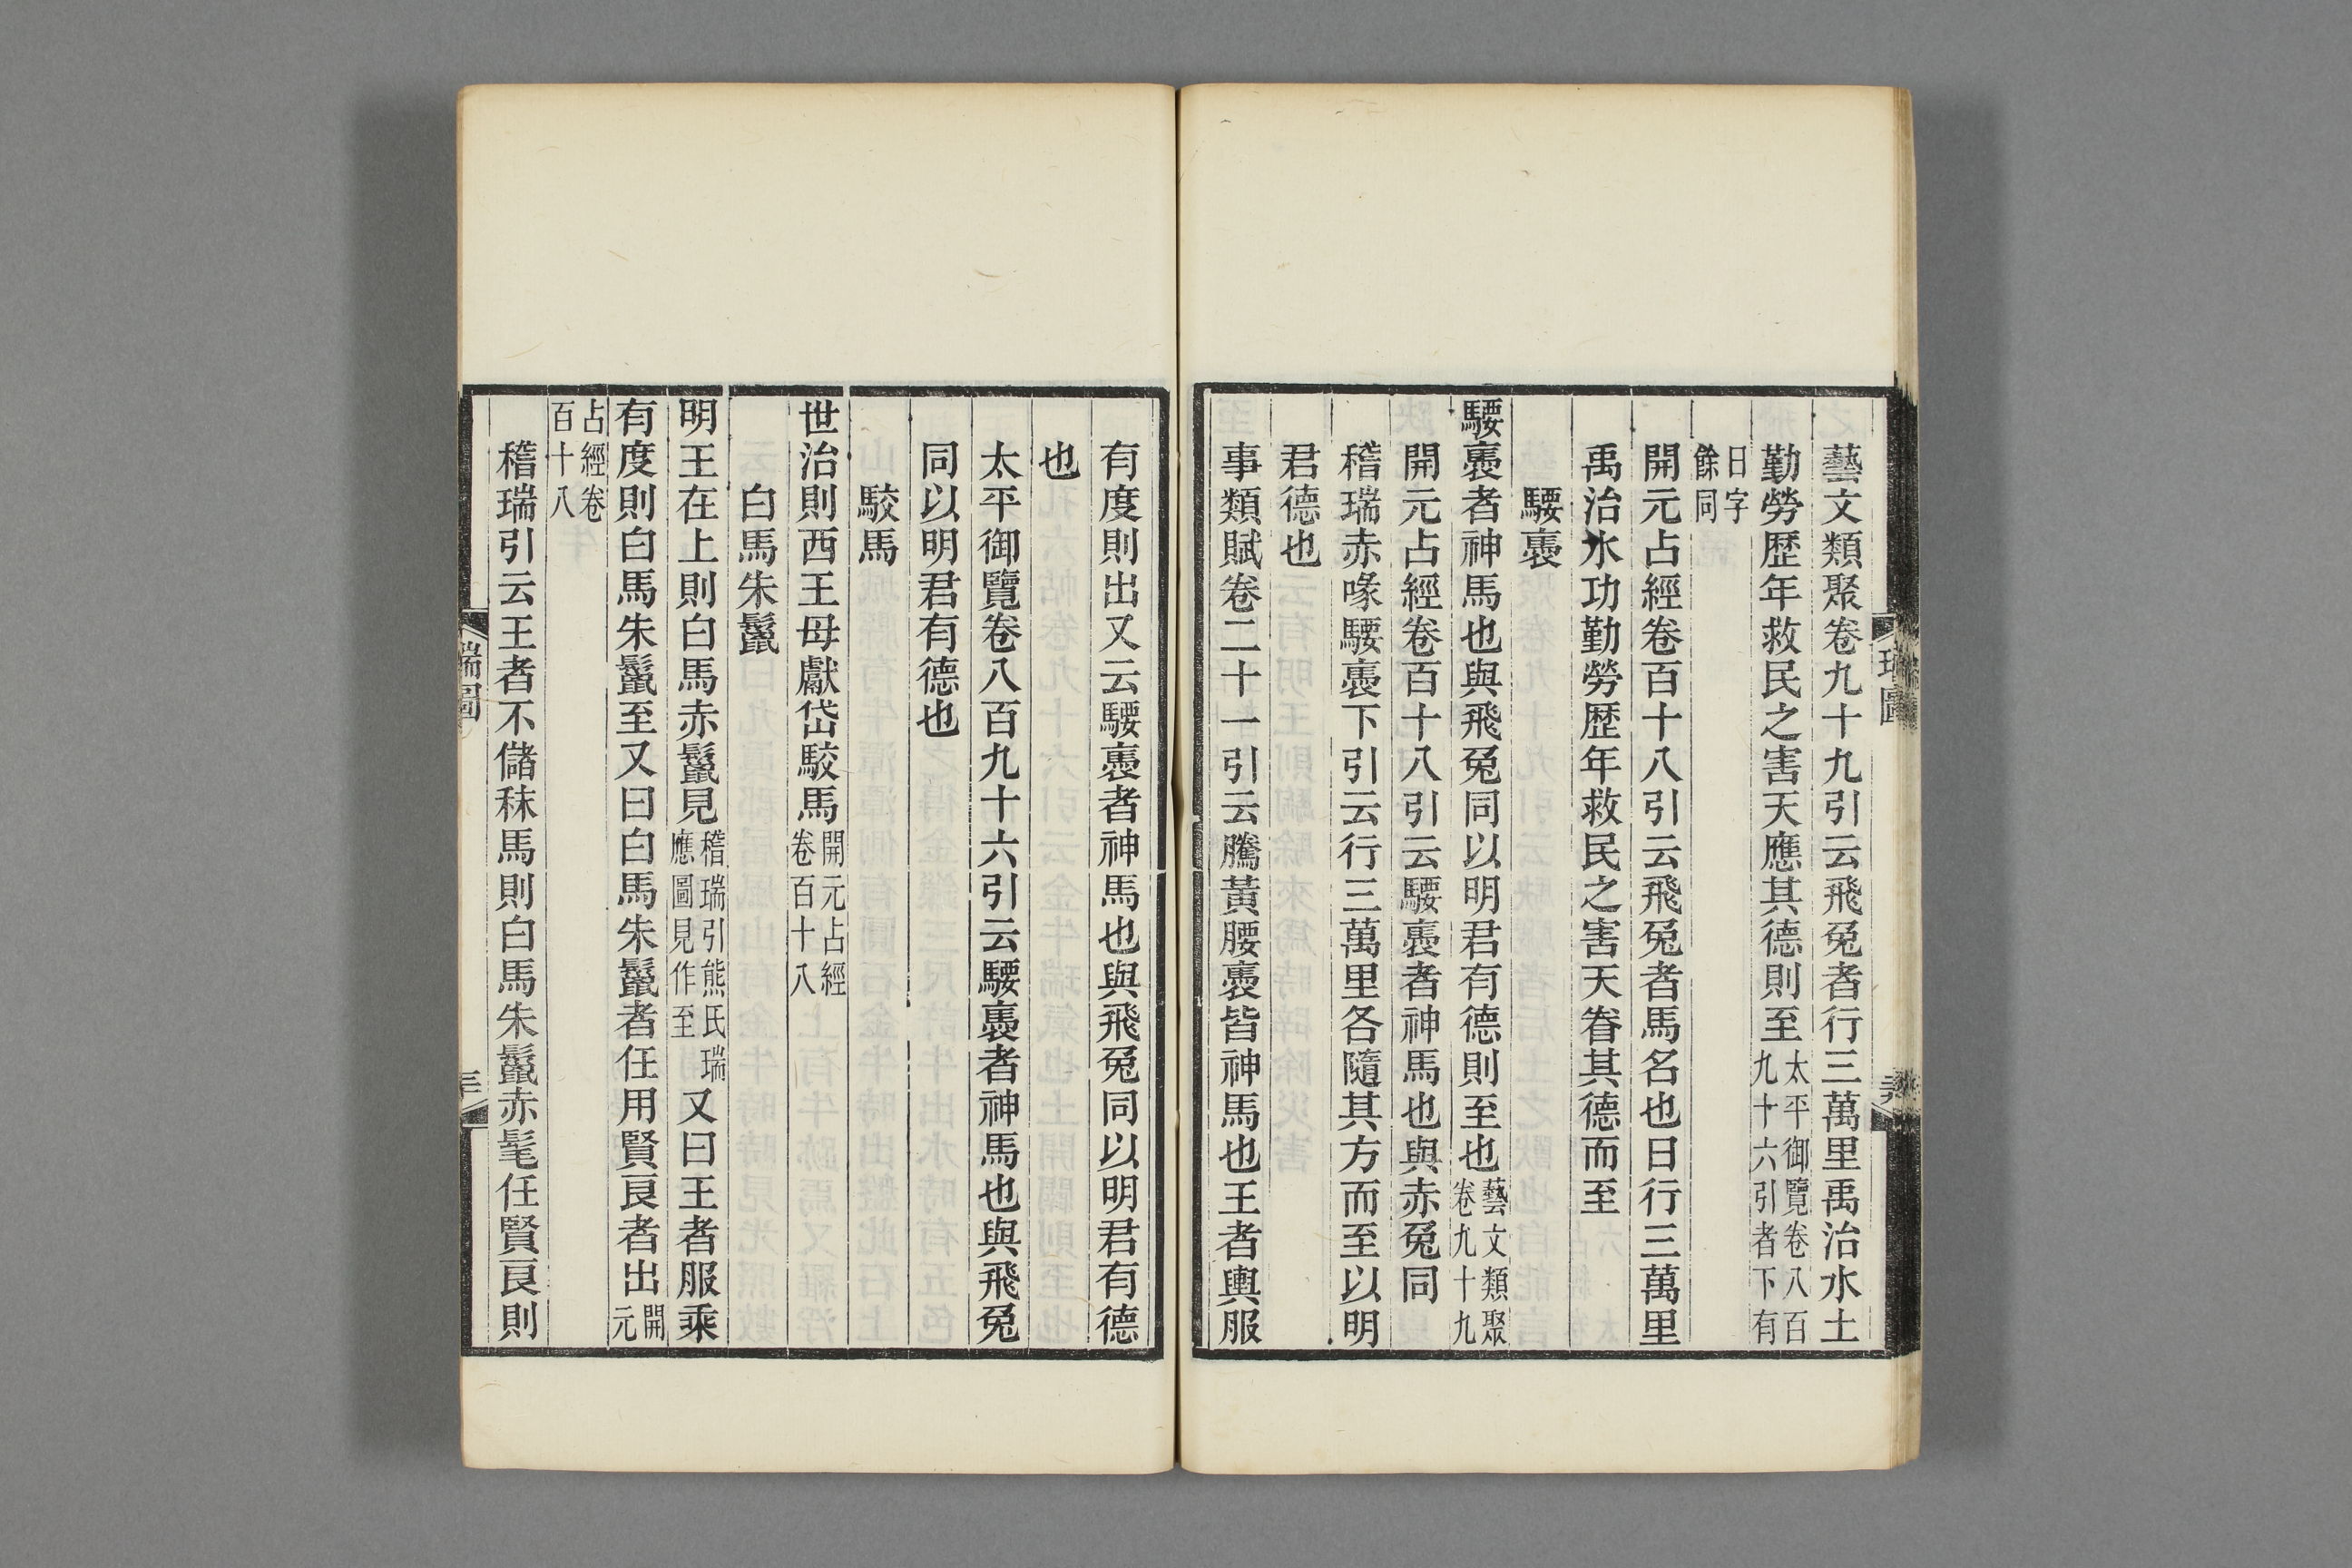 藝文類聚卷九十九引云飛兔者行三萬里禹治水土
勤勞歷年救民之害天應其德則至太平御覽卷八百九十六引者下有
日字餘同
開元占經卷百十八引云飛兔者馬名也日行三萬里
禹治水功勤勞歷年救民之害天眷其德而至
騕褭
騕褭者神馬也與飛兔同以明君有德則至也藝文類聚卷九十九
開元占經卷百十八引云騕褭者神馬也與赤兔同
稽瑞赤喙騕褭下引云行三萬里各隨其方而至以明
君德也
事類賦卷二十一引云騰黃腰褭皆神馬也王者輿服
有度則出又云騕褭者神馬也與飛兔同以明君有德
也
太平御覽卷八百九十六引云騕褭者神馬也與飛兔
同以明君有德也
駮馬
世治則西王母獻岱駮馬開元占經卷百十八
白馬朱鬣
明王在上則白馬赤鬣見稽瑞引熊氏瑞應圖見作至又曰王者服乘
有度則白馬朱鬣至又曰白馬朱鬣者任用賢良者出開元
占經卷百十八
稽瑞引云王者不儲秣馬則白馬朱鬣赤髦任賢良則
瑞圖